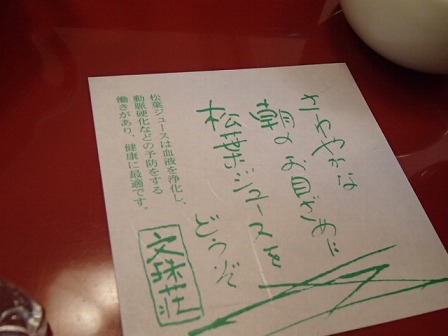 さわやかな
朝のお目ざめに
松葉ジュースを
どうぞ
松葉ジュースは血液を浄化し、
動脈硬化などの予防をする
働きがあり、健康に最適です。
文珠荘